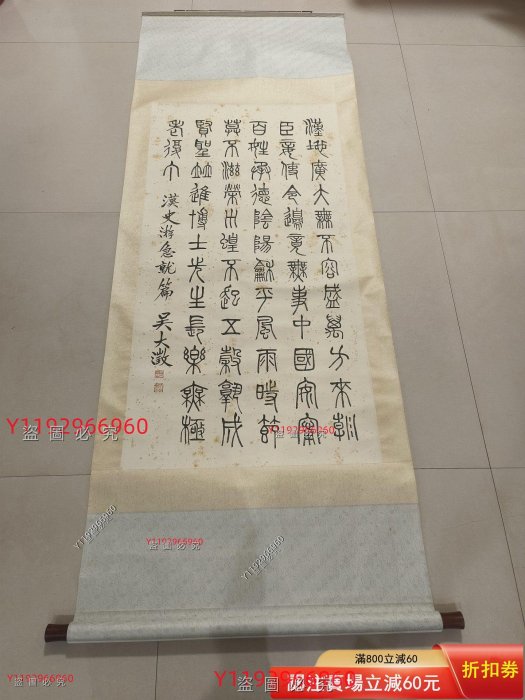 漢地廣大無不容盛萬方來朝
臣妾使令邊竟無事中國安寧
百姓承德陰陽龢平風雨時節
莫不滋榮災蝗不起五穀孰成
賢聖並進博士先生長樂無極
老復丁 漢史游急就篇 吳大澂
Y1192966960
盜圖必究
Y1192966960
盜圖必究
Y1192966960
Y1192966960
盜圖必究
Y1192966960
Y1192966960
盜圖必究
Y1192966960
盜圖必究
滿800立減60
賣場立減60元
折扣券